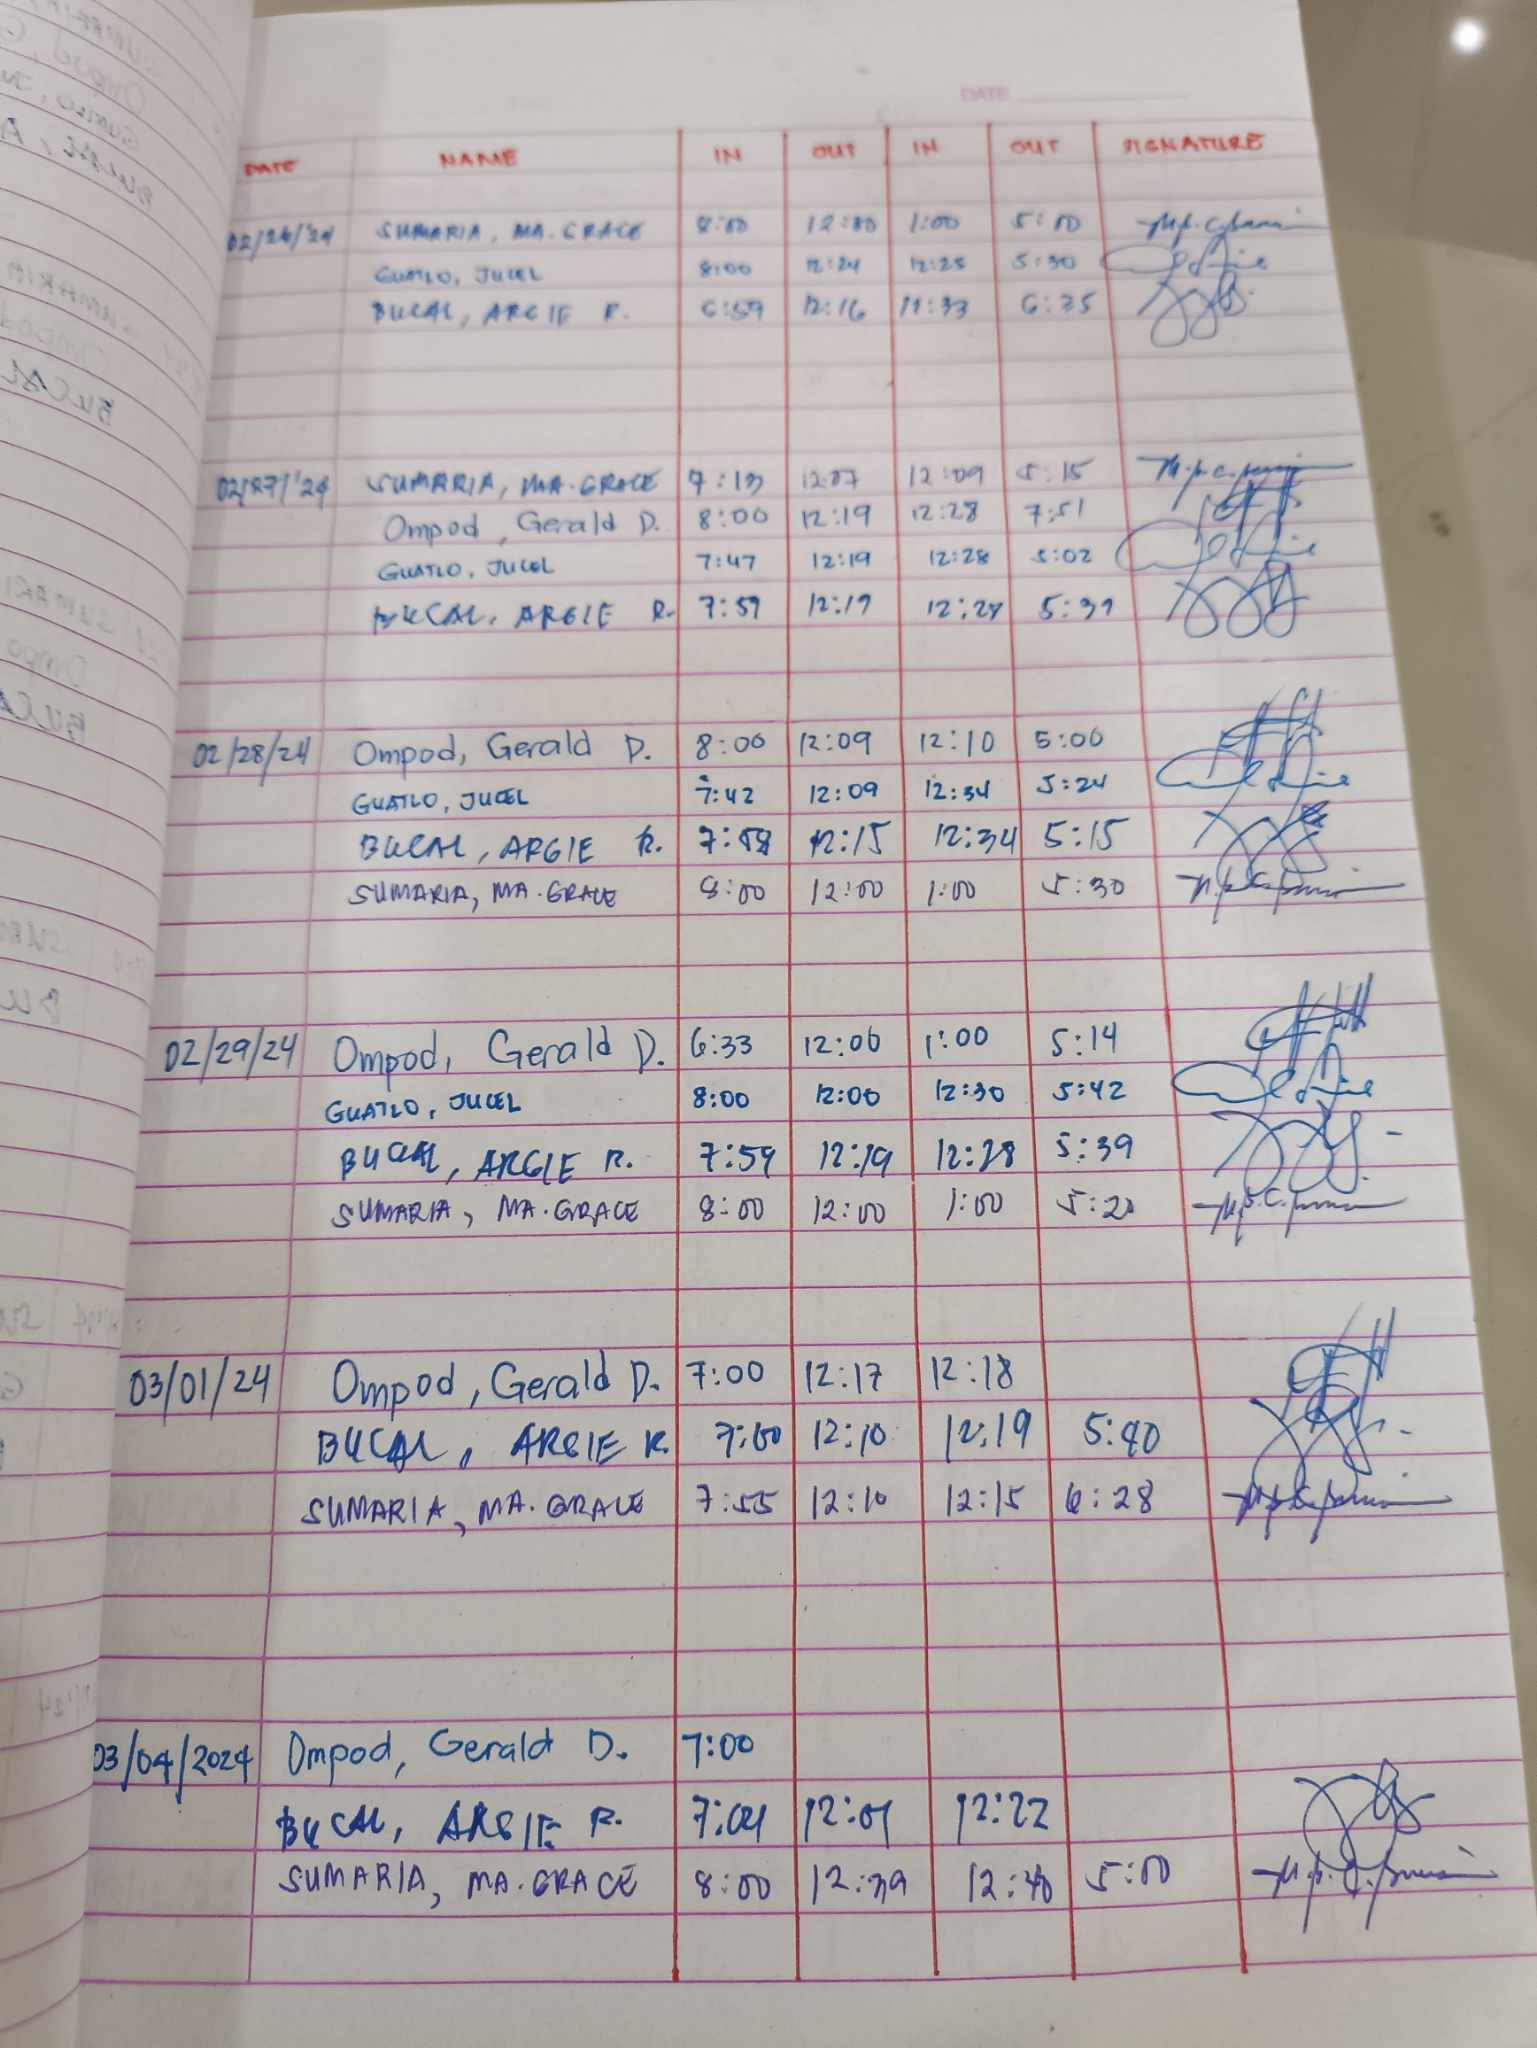 DATE
DATE NAME IN OUT IN OUT SIGNATURE
02/26/'24 SUMARIA, MA. GRACE 8:00 12:00 1:00 5:00
GUATLO, JUCEL 8:00 12:24 12:25 5:30
BUCAL, ARGIE R. 6:59 12:16 6:35
02/27/'24 SUMARIA, MA. GRACE 7:13 12:07 12:09 5:15
Ompod, Gerald D. 8:00 12:19 12:28 7:51
GUATLO, JUCEL 7:47 12:19 12:28 5:02
BUCAL, ARGIE R. 7:59 12:19 12:27 5:39
02/28/24 Ompod, Gerald D. 8:00 12:09 12:10 5:00
GUATLO, JUCEL 7:42 12:09 12:34 5:24
BUCAL, ARGIE R. 7:58 12:15 12:34 5:15
SUMARIA, MA. GRACE 8:00 12:00 1:00 5:30
02/29/24 Ompod, Gerald D. 6:33 12:06 1:00 5:14
GUATLO, JUCEL 8:00 12:00 12:30 5:42
BUCAL, ARGIE R. 7:59 12:19 12:28 5:39
SUMARIA, MA. GRACE 8:00 12:00 1:00 5:20
03/01/24 Ompod, Gerald D. 7:00 12:17 12:18
BUCAL, ARGIE R. 7:00 12:10 12:19 5:40
SUMARIA, MA. GRACE 7:55 12:10 12:15 6:28
03/04/2024 Ompod, Gerald D. 7:00
BUCAL, ARGIE R. 7:04 12:01 12:22
SUMARIA, MA. GRACE 8:00 12:39 12:40 5:00